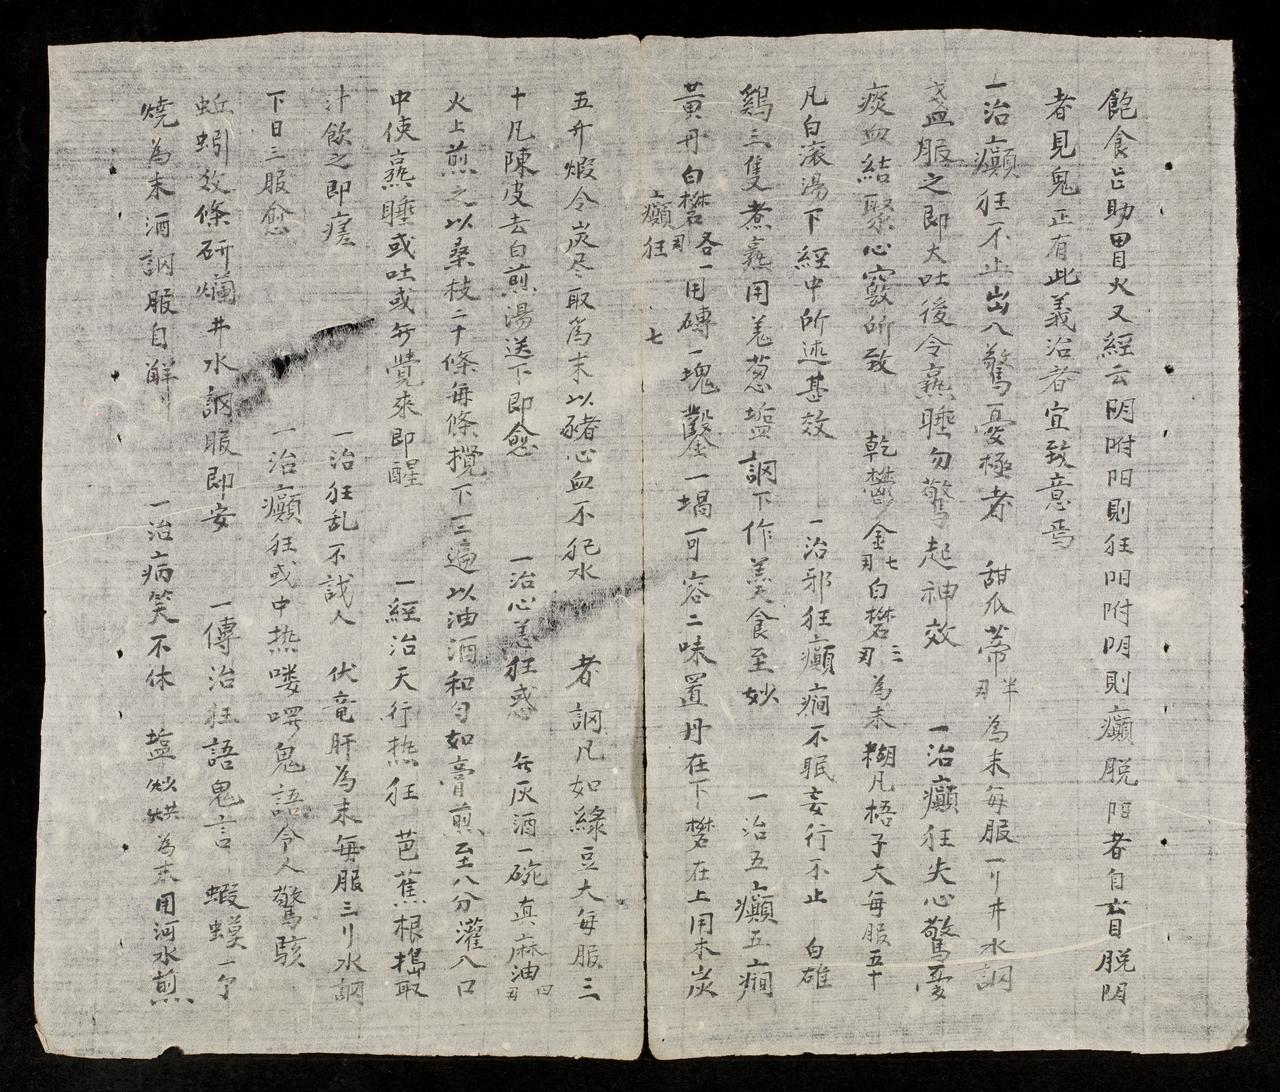 飽食足助胃火又經云阴附阳則狂阳附阴則癲脱阳者自盲脱阴
者見鬼正有此義治者宜致意焉
一治癲狂不止出八驚憂極者 甜瓜蒂半刄為末每服一刂井水調
盞服之即大吐後令熹睡勿驚起神效 一治癲狂失心驚憂
痰血結聚心竅所致 乾鬱金七刄白礬三刄為末糊凡梧子大每服五十
凡白滾湯下經中所述甚效 一治邪狂癲癎不眠妄行不止 白雄
鷄三隻煮熹用羗葱塩調下作羹食至妙 一治五癲五癎
黄丹白礬各一刄用磚一塊鑿一堝可容二味置丹在下礬在上用木炭
癲狂 七
五斤煆令炭尽取為末以豬心血不犯水者調凡如綠豆大每服三
十凡陳皮去白煎湯送下即愈 一治心恙狂惑 无灰酒一碗真麻油四刄
火上煎之以桑枝二十條每條攪下一二遍以油酒和匀如膏煎至八分灌入口
中使熹睡或吐或不覺來即醒 一經治天行热狂 芭蕉根搗取
汁飲之即瘥 一治狂乱不識人 伏竜肝為末每服三刂水調
下日三服愈 一治癲狂或中热喽㗁鬼語令人驚駭
蚯蚓数條研爛井水調服即安 一傳治狂語鬼言 蝦蟆一个
燒為末酒調服自解 一治病笑不休 塩炒烘為末用河水煎